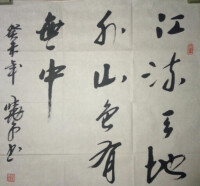 江流天地
外山色有
無中
癸未年
曉帆书